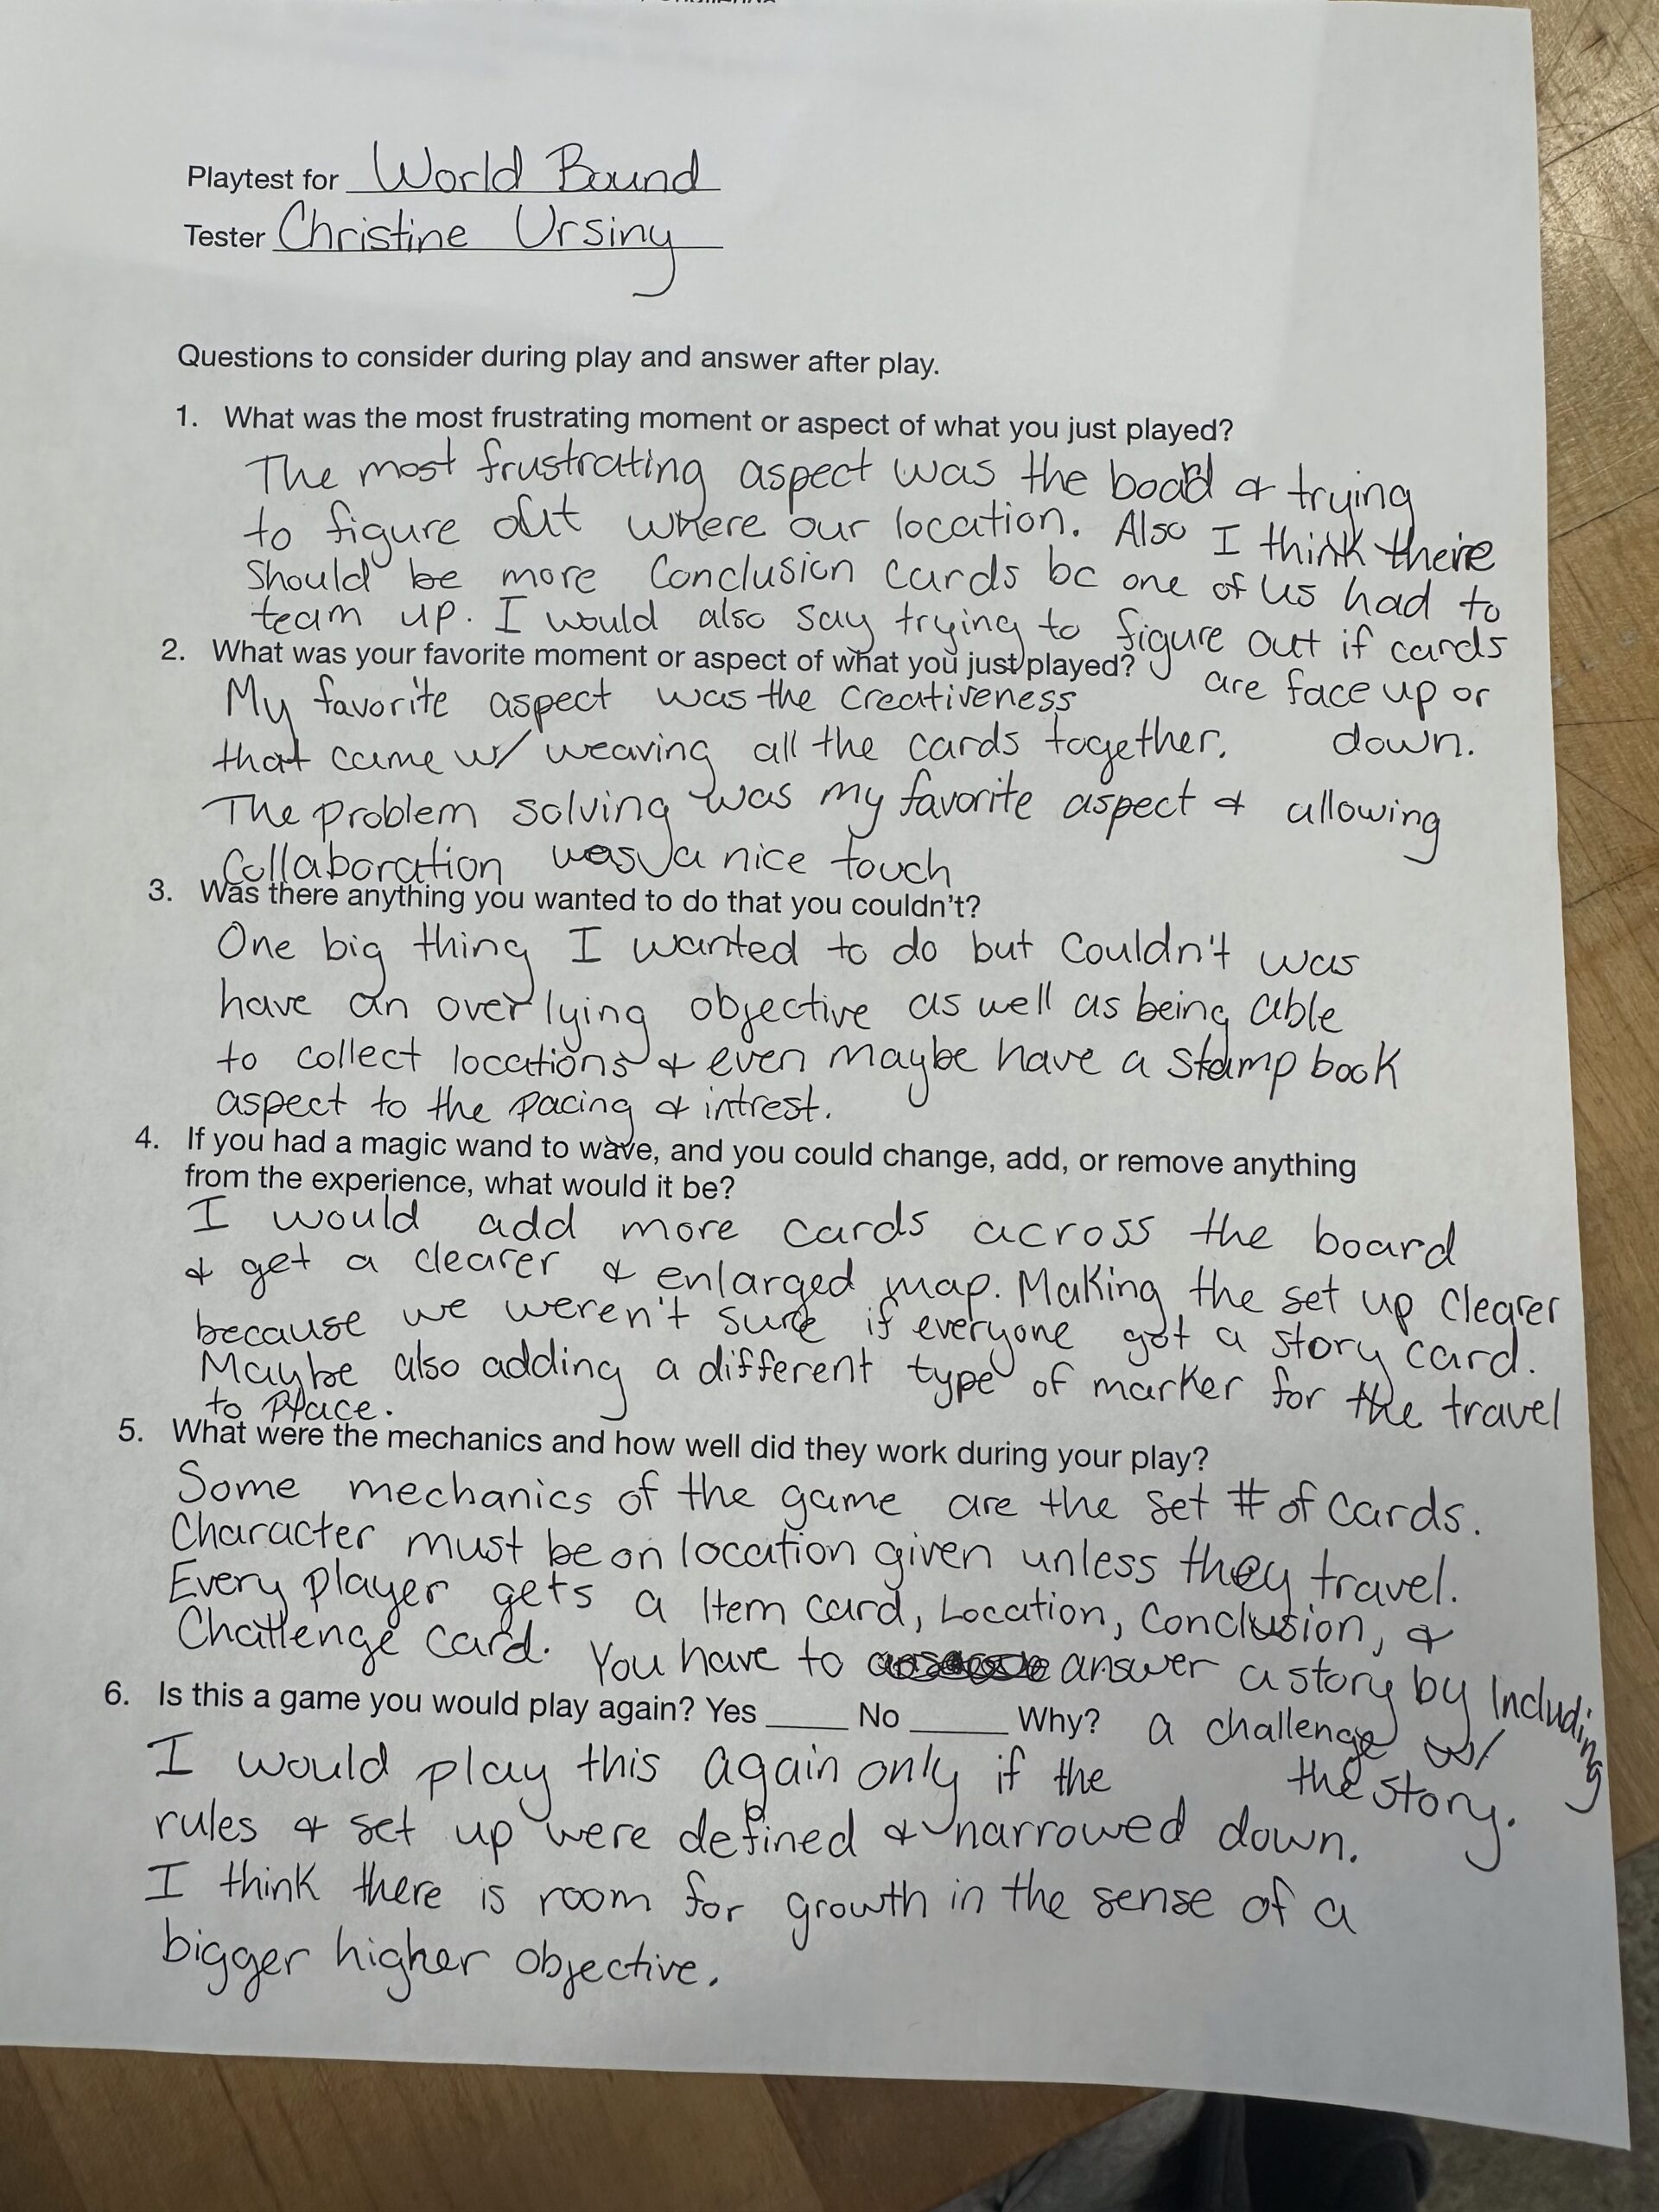 Playtest for World Bound
Tester Christine Ursiny
Questions to consider during play and answer after play.
1. What was the most frustrating moment or aspect of what you just played?
The most frustrating aspect was the board & trying
to figure out where our location. Also I think there
should be more Conclusion cards bc one of us had to
team up. I would also say trying to figure out if cards
are face up or
down.
2. What was your favorite moment or aspect of what you just played?
My favorite aspect was the creativeness
that came w/ weaving all the cards together.
The problem solving was my favorite aspect & allowing
Collaboration was a nice touch
3. Was there anything you wanted to do that you couldn't?
One big thing I wanted to do but couldn't was
have an over lying objective as well as being able
to collect locations & even maybe have a stamp book
aspect to the pacing & intrest.
4. If you had a magic wand to wave, and you could change, add, or remove anything
from the experience, what would it be?
I would add more cards across the board
& get a clearer & enlarged map. Making the set up clearer
because we weren't sure if everyone got a story card.
Maybe also adding a different type of marker for the travel
to place.
5. What were the mechanics and how well did they work during your play?
Some mechanics of the game are the set # of cards.
Character must be on location given unless they travel.
Every player gets a Item card, Location, Conclusion, &
Challenge card. You have to answer a story by Including
a challenge w/
the story.
6. Is this a game you would play again? Yes ____ No _____ Why?
I would play this again only if the
rules & set up were defined & narrowed down.
I think there is room for growth in the sense of a
bigger higher objective.